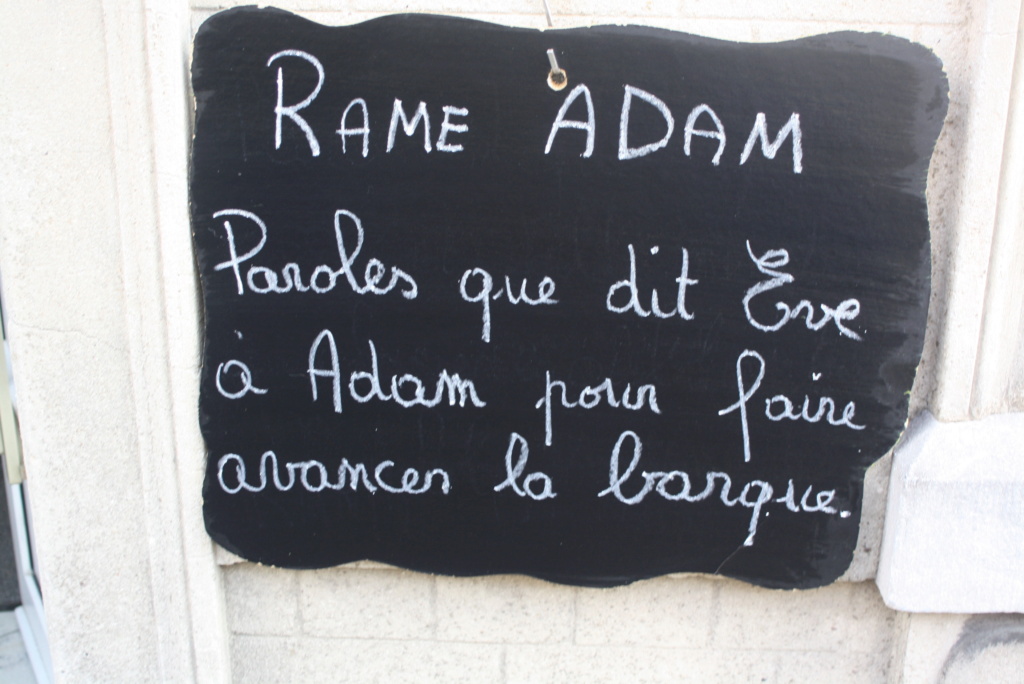 RAME ADAM
Paroles que dit Eve
à Adam pour faire
avancer la barque.